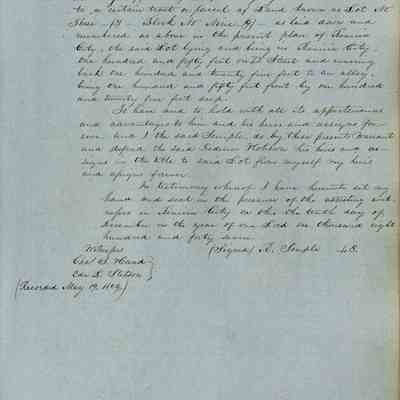 to a certain tract or parcel of Land known as Lot No
Block No Nine (9) as laid down and
numbered as above in the present plan of Benicia
City, the said Lot lying and being in Benicia City.
one hundred and fifty feet on D Street and running
back one hundred and twenty five feet to an alley.
being one hundred and fifty feet front by one hundred
and twenty five feet deep.
To have and to hold with all its appurtenances
and advantages to him and his heirs and assigns for-
ever and I the said Semple, do by these presents warrant
and defend the said his heirs and as-
signs in the title to said Lot from myself my heirs
and assigns forever.
In testimony whereof I have hereunto set my
hand and seal in the presence of the attesting wit-
nesses in Benicia City on this the tenth day of
December in the year of our Lord one thousand eight
hundred and forty seven.
Witnesses (Signed) R. Semple
Hand
Stetson
(Recorded May 19, 1849)